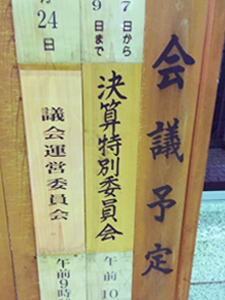 会議予定
7日から
9日まで
決算特別委員会
午前10
月24日
議会運営委員会
午前9時